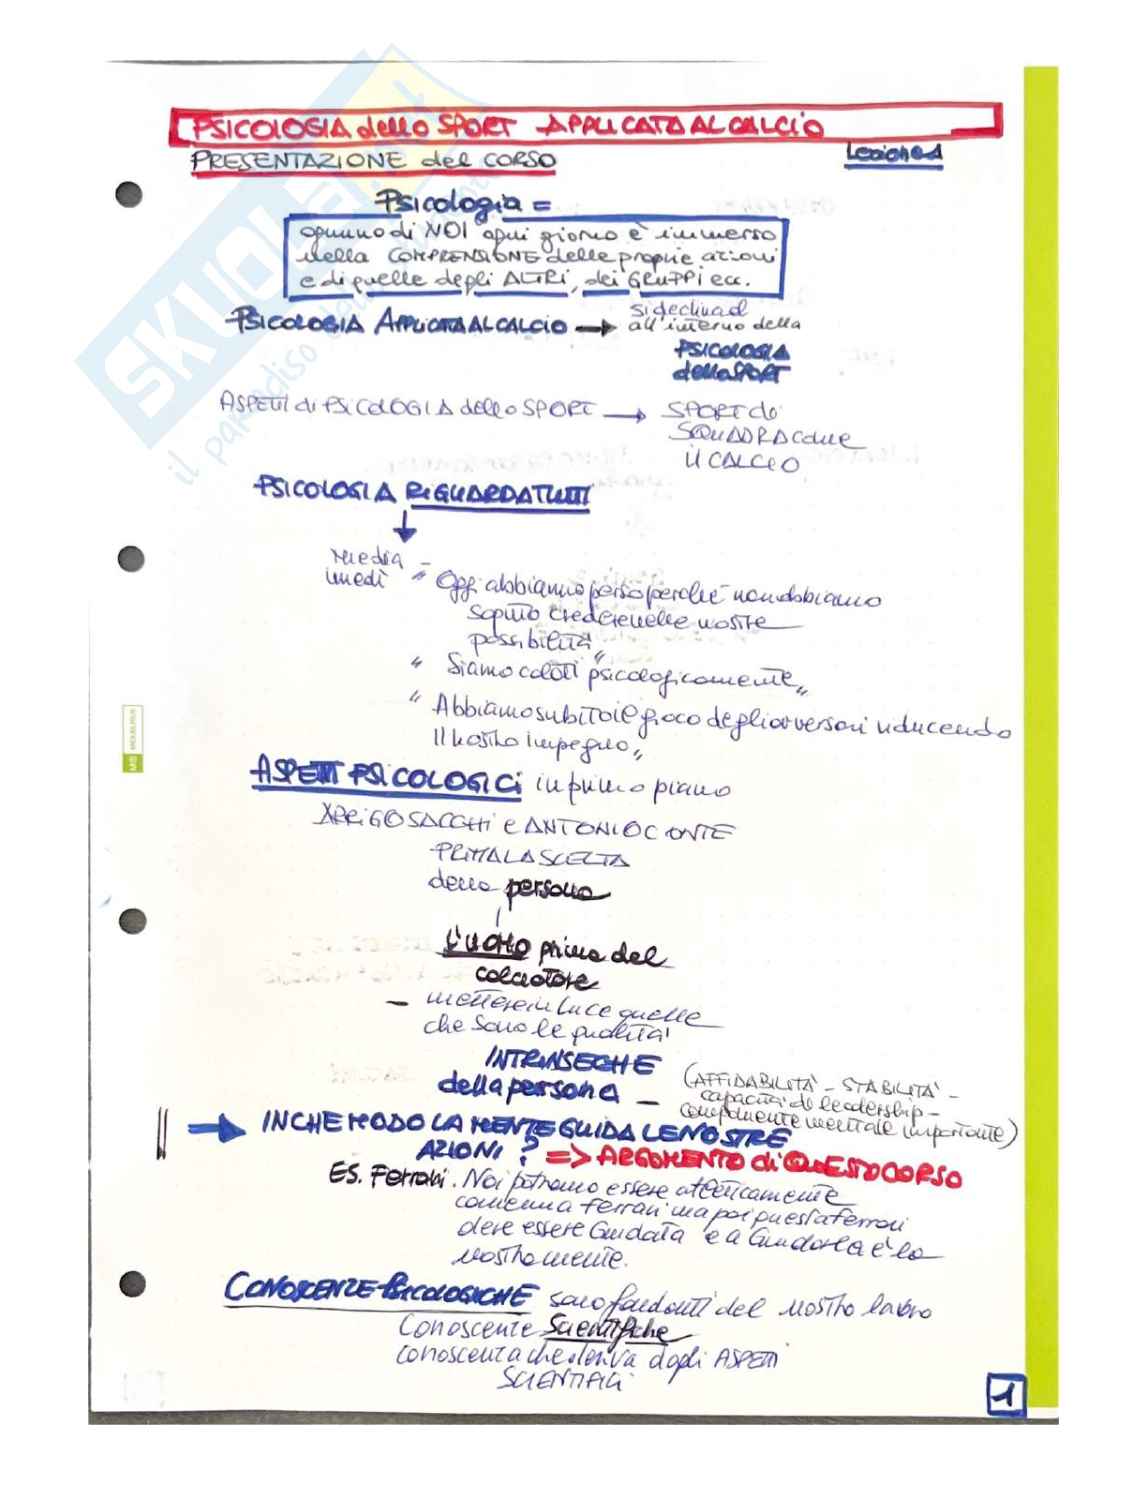 PSICOLOGIA dello SPORT APPLICATA AL CALCIO
PRESENTAZIONE del CORSO
Lezione 1
Psicologia =
ognuno di NOI ogni giorno è immerso
nella COMPRENSIONE delle proprie azioni
e di quelle degli ALTRI, dei GRUPPI ecc.
PSICOLOGIA APPLICATA AL CALCIO → si declina
all'interno della
PSICOLOGIA
dello SPORT
ASPETTI di PSICOLOGIA dello SPORT → SPORT di
SQUADRA come
il CALCIO
PSICOLOGIA RIGUARDA TUTTI
↓
media -
"Oggi abbiamo perso perché non abbiamo
saputo credere nelle nostre
possibilità"
"Siamo calati psicologicamente"
"Abbiamo subito il gioco degli avversari riducendo
Il nostro impegno"
ASPETTI PSICOLOGICI in primo piano
ARRIGO SACCHI e ANTONIO CONTE
PRIMA LA SCELTA
della persona
L'UOMO prima del
calciatore
- mettere in luce quelle
che sono le qualità
INTRINSECHE
della persona -
(AFFIDABILITÀ - STABILITÀ -
capacità di leadership -
componente mentale importante)
→ IN CHE MODO LA MENTE GUIDA LE NOSTRE
AZIONI? => ARGOMENTO di QUESTO CORSO
ES. Ferrari. Noi potremo essere atleticamente
come una Ferrari ma poi questa Ferrari
deve essere Guidata e a Guidarla è la
nostra mente.
CONOSCENZE PSICOLOGICHE sono fondanti del nostro lavoro
Conoscenze Scientifiche
conoscenza che deriva dagli ASPETTI
SCIENTIFICI
1
SKUOLA.net
il paradiso dello studente